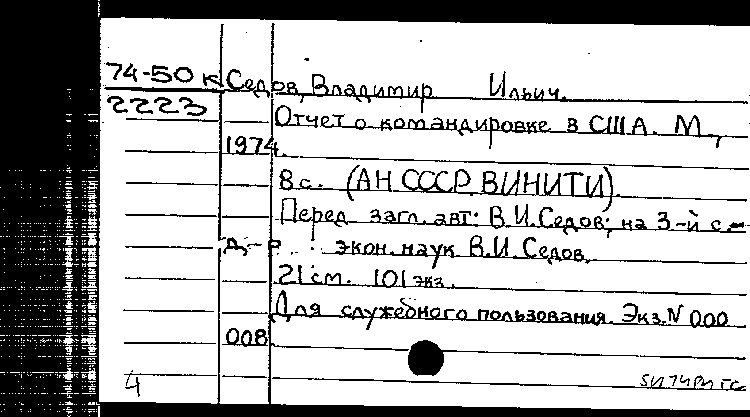 74-50к Седов, Владимир Ильич.
2223
Отчет о командировке в США. М.,
1974.
8 с. (АН СССР. ВИНИТИ).
Перед загл. авт: В.И.Седов; на 3-й с.-
д-р экон. наук В.И. Седов.
21 см. 101 экз.
Для служебного пользования. Экз. N 000
008
4